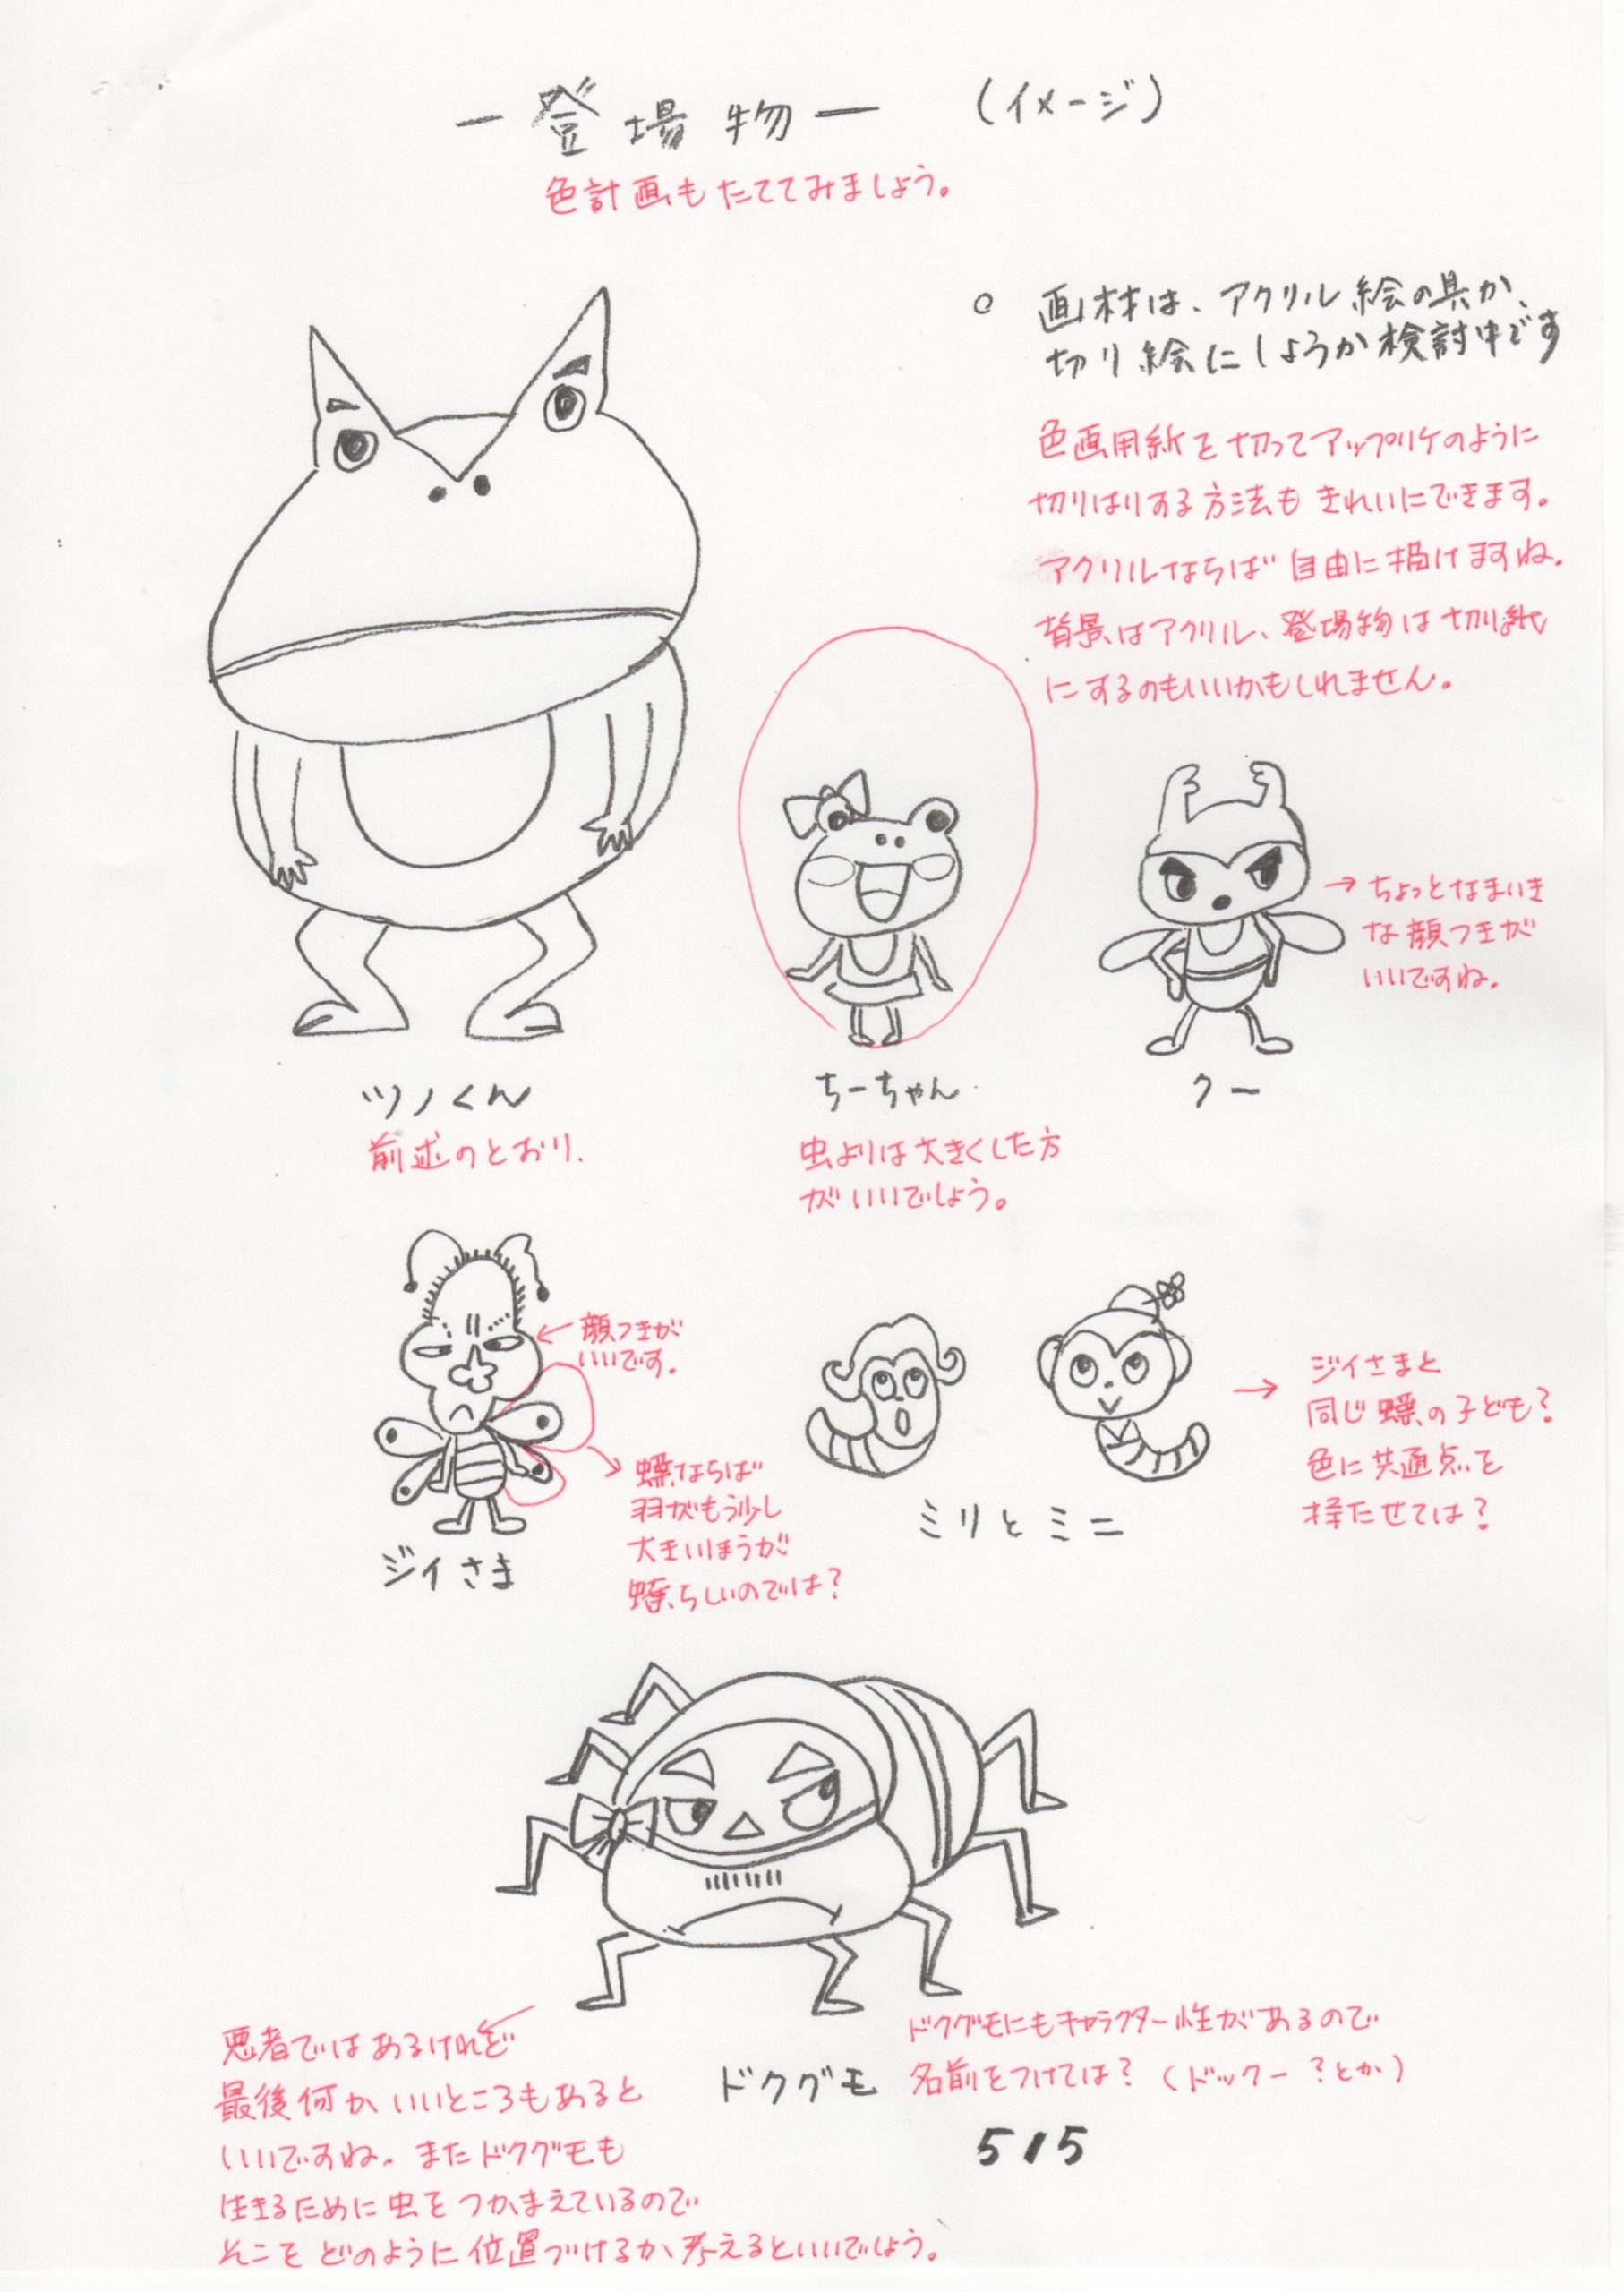 ー登場物ー (イメージ)
色計画もたててみましょう。
○ 画材は、アクリル絵の具か、
切り絵にしようか検討中です
色画用紙を切ってアップリケのように
切りはりする方法もきれいにできます。
アクリルならば自由に描けますね。
背景はアクリル、登場物は切り紙
にするのもいいかもしれません。
→ちょっとなまいき
な顔つきが
いいですね。
ツノくん
前述のとおり.
ちーちゃん
虫よりは大きくした方
がいいでしょう。
クー
←顔つきが
いいです.
蝶ならば
羽がもう少し
大きいほうが
蝶らしいのでは?
ジイさま
ミリとミニ
→ ジイさまと
同じ蝶の子ども?
色に共通点を
持たせては?
悪者ではあるけれど
最後何かいいところもあると
いいですね。またドクグモも
生きるために虫をつかまえているので
そこをどのように位置づけるか考えるといいでしょう。
ドクグモ
ドクグモにもキャラクター性があるので
名前をつけては?(ドックー?とか)
515